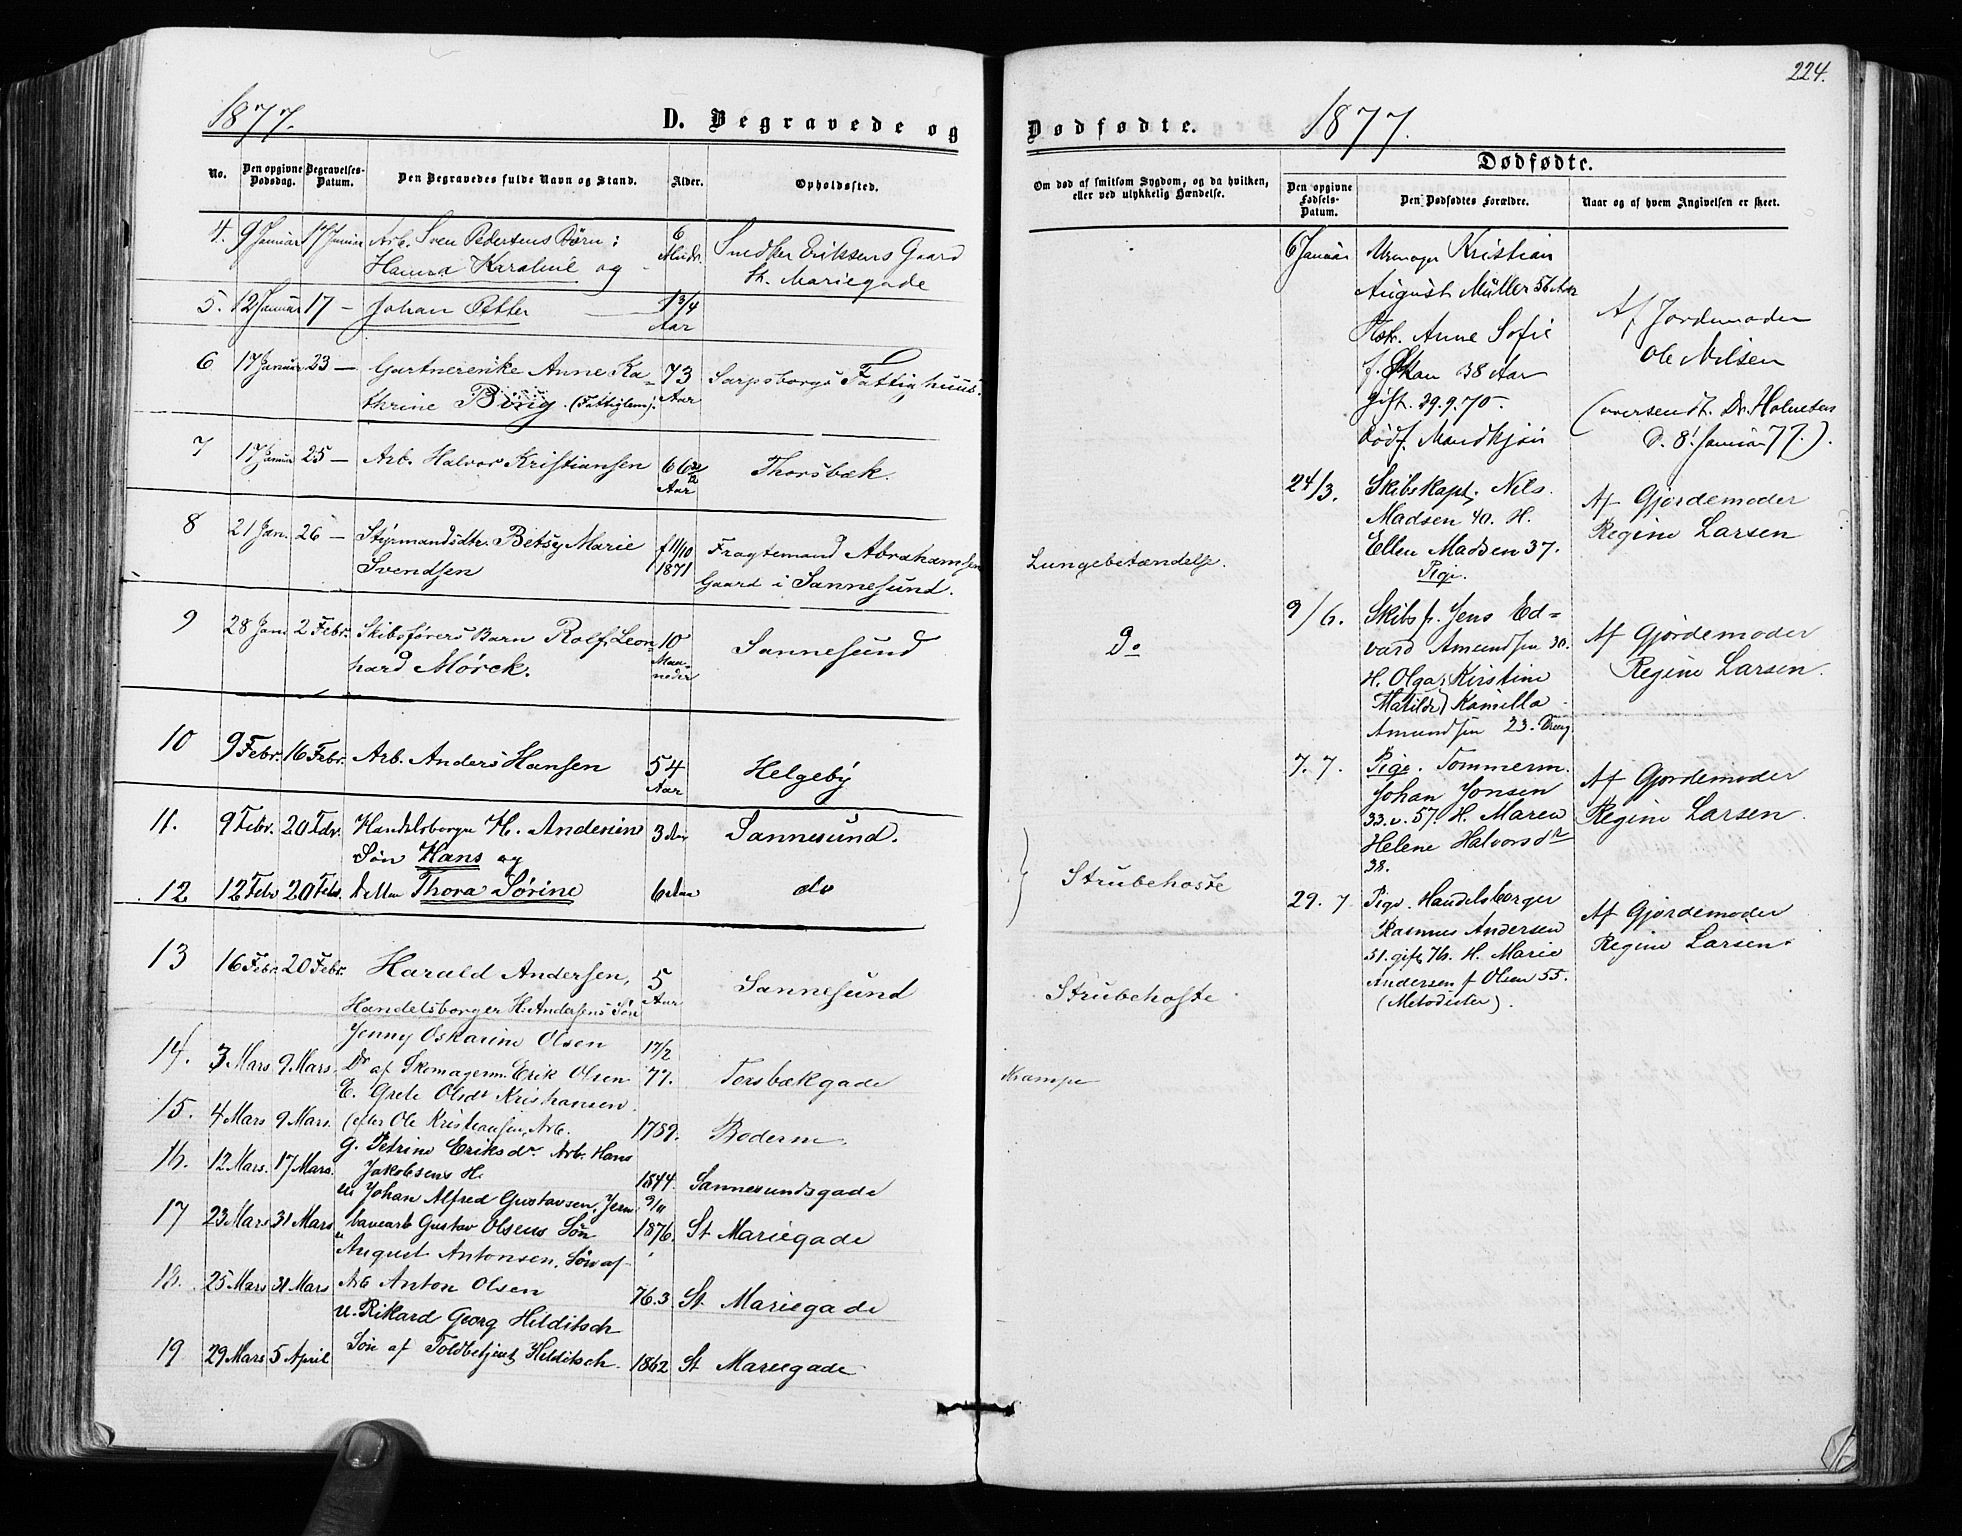 1877.
D. Begravede og
No.
Den opgivne Dødsdag.
Begravelses-Datum.
Den Begravedes fulde Navn og Stand.
Alder.
Opholdssted.
4. 9 Januar 17 Januar Arb. Sven Pedersens Børn: 6 Mndr. Snedker Eriksens Gaard
Hanna Karoline og St. Mariegade
5. 12 Januar 17 — Johan Petter 1 3/4 Aar
6 17 Januar 23 — Gartnerenke Anne Ka= 73 Aar Sarpsborgs Fattighuus.
thrine (Fattiglem).
7 17 Januar 25 — Arb. Halvor Kristiansen 66 Aar Thorsbæk.
8 21 Jan. 26 — Styrmandsdtr. Betsy Marie f 11/10 1871 Fragtemand Abrahamsen
Svendsen Gaard i Sannesund.
9 28 Jan. 2 Febr. Skibsførers Barn Rolf Leon 10 Maaneder Sannesund
hard Mørck.
10 9 Febr. 16 Febr. Arb. Anders Hansen 54 Aar Helgeby
11. 9 Febr. 20 Febr. Handelsborger H. Andersens 3 Aar Sannesund.
Søn Hans og
12 12 Febr 20 Febr. Datter Thora Sørine 6 Aar do
13 16 Febr. 20 Febr. Harald Andersen, 5 Aar Sannesund
Handelsborger H. Andersens Søn
14. 3 Mars 9 Mars. Jenny Oskarine Olsen 17/2 77. Torsbækgade
Dr af Skomagerm. Erik Olsen
15. 4 Mars 9 Mars. E. Grete Olsdr Kristiansen. 1789. Boderne
(efter Ole Kristiansen, Arb.
16. 12 Mars. 17 Mars. g. Petrine Eriksdr. Arb. Hans 1844. Sannesundsgade
Jakobsens H.
17 23 Mars 31 Mars u Johan Alfred Gustavsen, Jern 9/11 1876. St Mariegade
banearb Gustav Olsens Søn
18. 25 Mars 31 Mars u August Antonsen, Søn af 76.3 St. Mariegade
Arb Anton Olsen
19 29 Mars 5 April u. Rikard Georg Hilditsch 1862 St Mariegade
Søn af Toldbetjent Hilditsch.
224.
Dødfødte.
1877.
Dødfødte.
Om død af smitsom Sygdom, og da hvilken, eller ved ulykkelig Hændelse.
Den opgivne Fødsels-Datum.
Den Dødfødtes Forældre.
Naar og af hvem Angivelsen er skeet.
Lungebetændelse.
Do
Strubehoste
Strubehoste
Krampe
6 Januar Urmager Kristian
August Müller 56 Aar
Hstr. Anne Sofie
38 Aar
gift. 29.9.70.
dødf. Mandkjøn
Af Jordemoder
Ole Nilsen
(oversendt. Dr. Holmsten
D. 8. Januar 77.).
24/3. Skibskapt. Nels.
Madsen 40. H.
Ellen Madsen 37.
Pige.
Af Gjordemoder
Regine Larsen
9/6. Skibsf. Jens Ed=
vard Amundsen 30.
H. Olga Kirstine
Matilde Kamilla
Amundsen 23. Dreng
Af Gjordemoder
Regine Larsen.
7. 7. Pige. Tømmerm.
Johan Jonsen
33. v. 57. H. Maren
Helene Halvorsdr
38.
Af Gjordemoder
Regine Larsen.
29. 7 Pige. Handelsborger
Rasmus Andersen
51. gift 76. H. Marie
Andersen f Olsen 55.
(Metodister).
Af Gjordemoder
Regine Larsen.